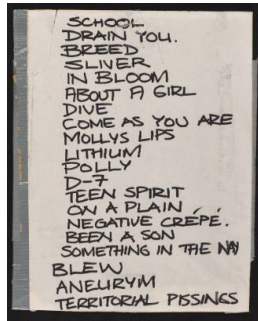 SCHOOL
DRAIN YOU.
BREED
SLIVER
IN BLOOM
ABOUT A GIRL
DIVE
COME AS YOU ARE
MOLLYS LIPS
LITHIUM
POLLY
D-7
TEEN SPIRIT
ON A PLAIN
NEGATIVE CREPE.
BEEN A SON
SOMETHING IN THE WAY
BLEW
ANEURYIM
TERRITORIAL PISSINGS